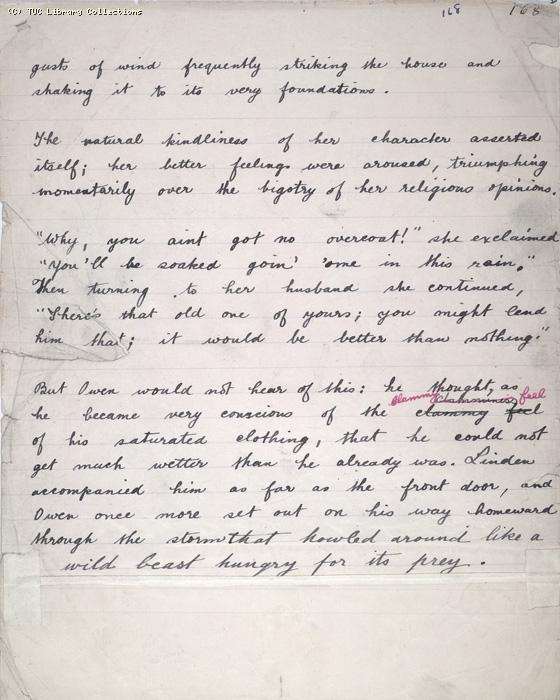 (C) TUC Library Collections
168 168
gusts of wind frequently striking the house and
shaking it to its very foundations.
The natural kindliness of her character asserted
itself; her better feelings were aroused, triumphing
momentarily over the bigotry of her religious opinions.
"Why, you aint got no overcoat!" she exclaimed
"You'll be soaked goin' 'ome in this rain."
Then turning to her husband she continued,
"There's that old one of yours; you might lend
him that; it would be better than nothing."
But Owen would not hear of this: he thought, as
clammy clamminess feel
he became very conscious of the clammy feel
of his saturated clothing, that he could not
get much wetter than he already was. Linden
accompanied him as far as the front door, and
Owen once more set out on his way homeward
through the storm that howled around like a
wild beast hungry for its prey.